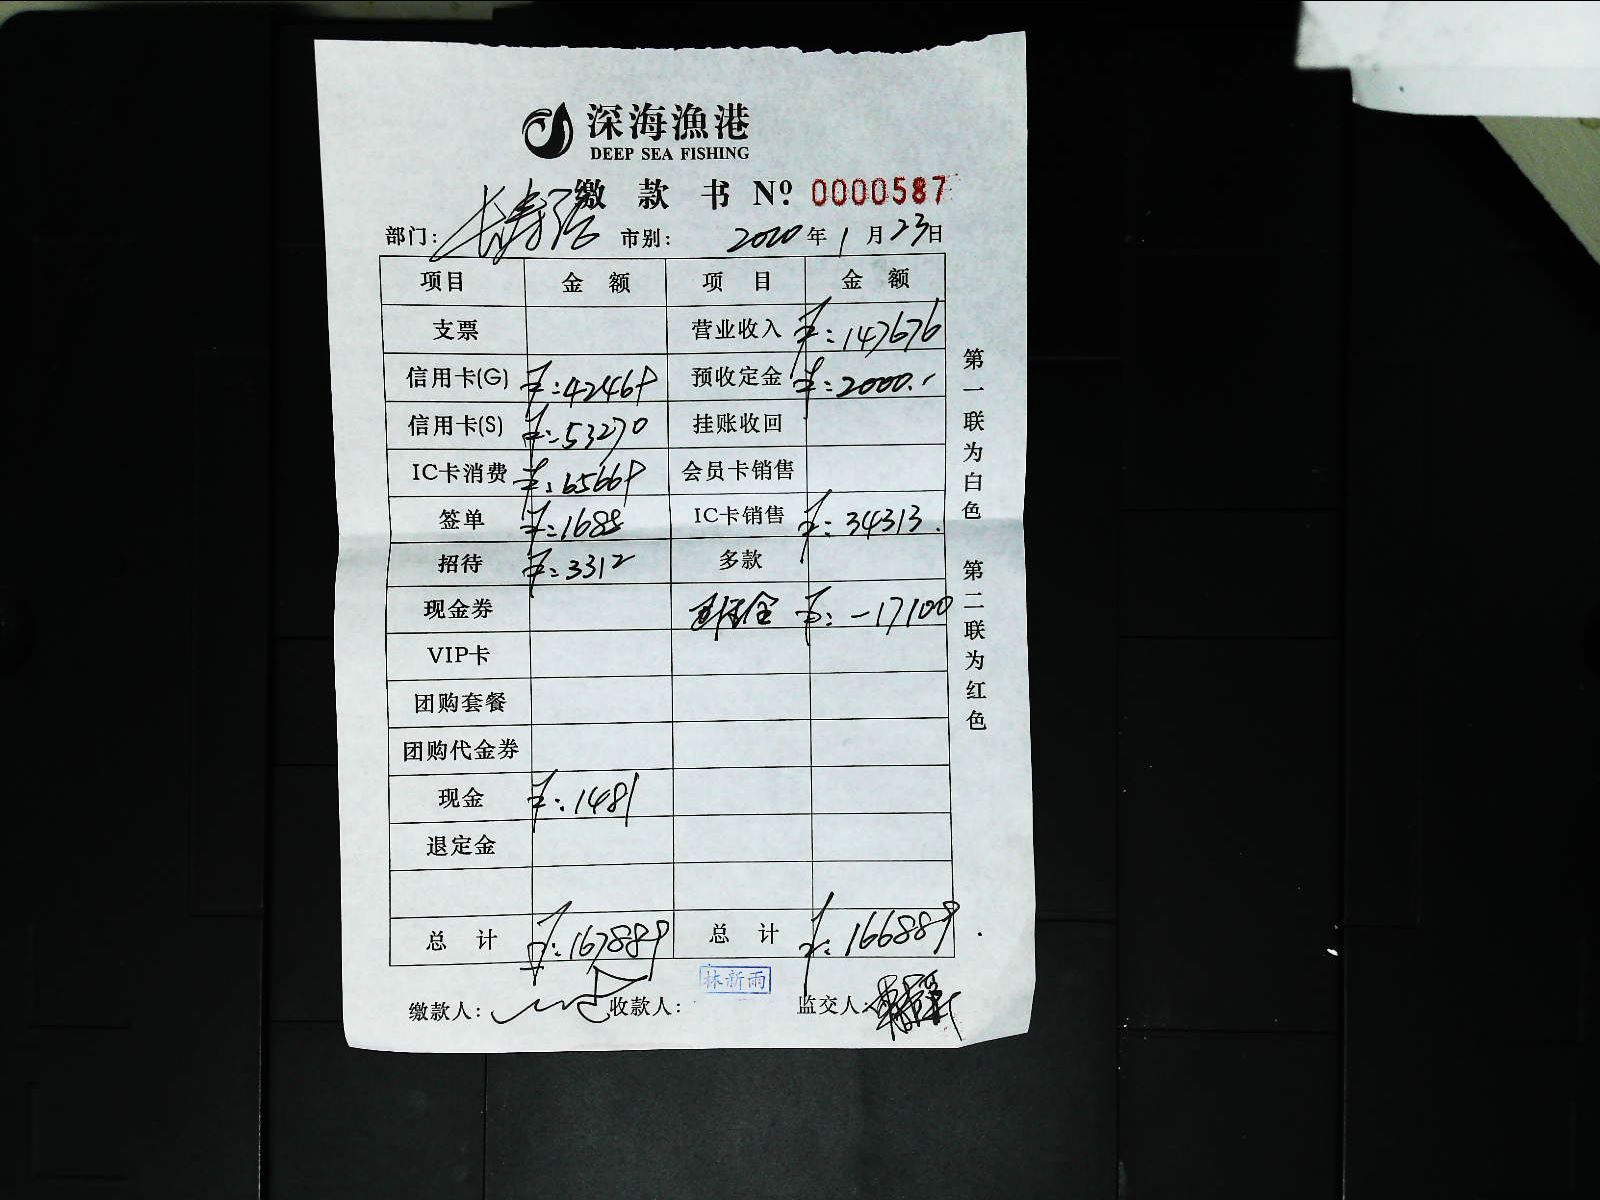 深海渔港
DEEP SEA FISHING
缴款书 Nº 0000587
部门: 长寿路 市别: 2020年1月23日
项目 金额 项目 金额
支票 营业收入 ¥:147676
信用卡(G) ¥:42469 预收定金 ¥:2000.-
信用卡(S) ¥:53270 挂账收回
IC卡消费 ¥:65669 会员卡销售
签单 ¥:1688 IC卡销售 ¥:34313.
招待 ¥:3312 多款
现金券 定金 ¥:-17100
VIP卡
团购套餐
团购代金券
现金 ¥:1481
退定金
总计 ¥:167889 总计 ¥:166889
缴款人: 收款人: 林新雨 监交人:
第一联为白色 第二联为红色